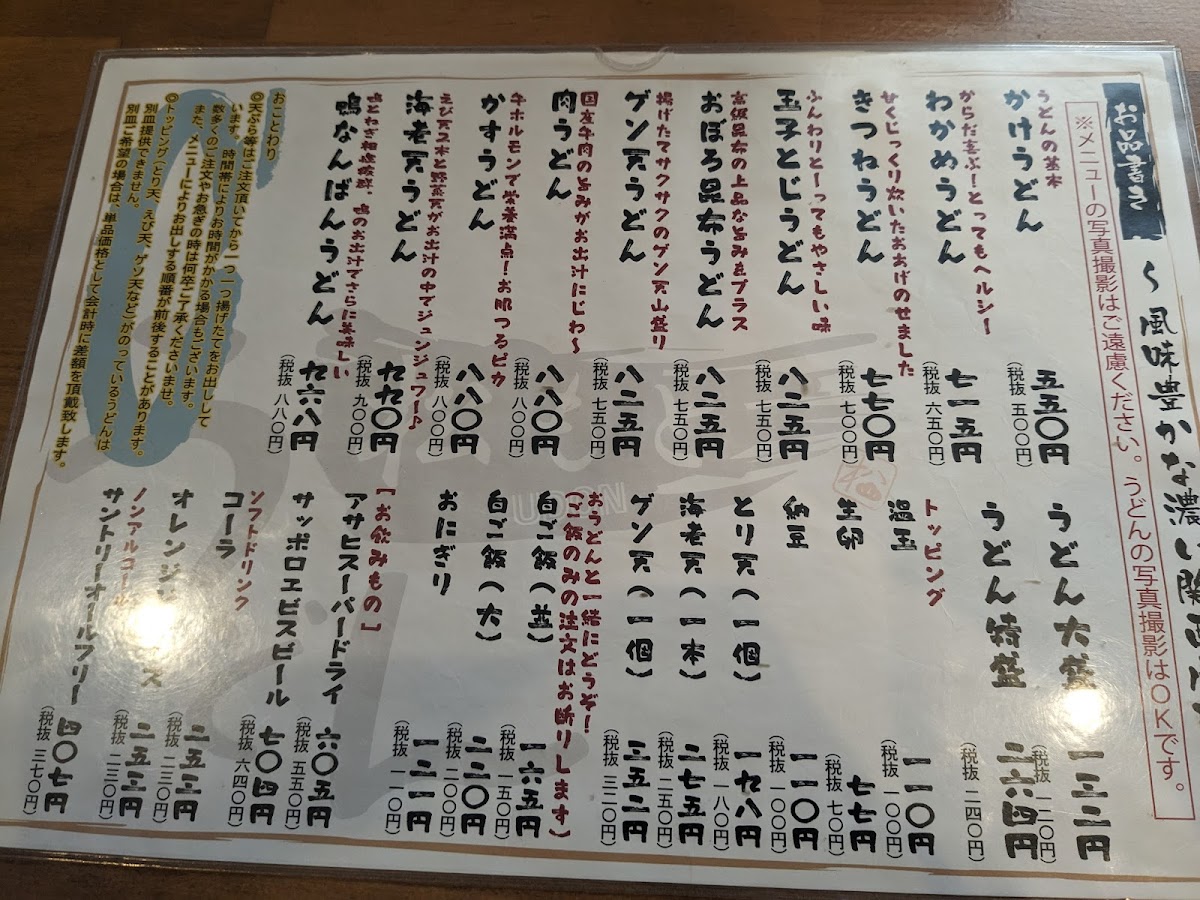 お品書き
～風味豊かな濃い関西
※メニューの写真撮影はご遠慮ください。うどんの写真撮影はＯＫです。
うどんの基本
かけうどん
五五〇円
(税抜 五〇〇円)
からだ喜ぶ！とってもヘルシー
わかめうどん
七一五円
(税抜 六五〇円)
せくじっくり炊いたおあげのせました
きつねうどん
七七〇円
(税抜 七〇〇円)
ふんわりとーってもやさしい味
玉子とじうどん
八二五円
(税抜 七五〇円)
高級昆布の上品な旨みをプラス
おぼろ昆布うどん
八二五円
(税抜 七五〇円)
揚げたてサクサクのゲソ天山盛り
ゲソ天うどん
八二五円
(税抜 七五〇円)
国産牛肉の旨みがお出汁にじわ～
肉うどん
八八〇円
(税抜 八〇〇円)
牛ホルモンで栄養満点！お肌つるピカ
かすうどん
八八〇円
(税抜 八〇〇円)
えび天2本と野菜天がお出汁の中でジュンジュワー♪
海老天うどん
九九〇円
(税抜 九〇〇円)
鴨とねぎ相性抜群 鴨のお出汁でさらに美味しい
鴨なんばんうどん
九六八円
(税抜 八八〇円)
おことわり
◎天ぷら等はご注文頂いてから一つ一つ揚げたてをお出しして
います。時間帯によりお時間がかかる場合もございます。
数多くのご注文やお急ぎの時は何卒ご了承くださいませ。
また、メニューによりお出しする順番が前後することがあります。
◎トッピング（とり天、えび天、ゲソ天など）がのっているうどんは
別皿提供できません。
別皿ご希望の場合は、単品価格として会計時に差額を頂戴致します。
うどん大盛
一三二円
(税抜 一二〇円)
うどん特盛
二六四円
(税抜 二四〇円)
トッピング
温玉
一一〇円
(税抜 一〇〇円)
生卵
七七円
(税抜 七〇円)
納豆
一一〇円
(税抜 一〇〇円)
とり天(一個)
一九八円
(税抜 一八〇円)
海老天(一本)
二七五円
(税抜 二五〇円)
ゲソ天(一個)
三五二円
(税抜 三二〇円)
おうどんと一緒にどうぞー
(ご飯のみの注文はお断りします)
白ご飯(並)
一六五円
(税抜 一五〇円)
白ご飯(大)
二二〇円
(税抜 二〇〇円)
おにぎり
一二一円
(税抜 一一〇円)
[お飲みもの]
アサヒスーパードライ
六〇五円
(税抜 五五〇円)
サッポロエビスビール
七〇四円
(税抜 六四〇円)
ソフトドリンク
コーラ
二五三円
(税抜 二三〇円)
オレンジジュース
二五三円
(税抜 二三〇円)
ノンアルコール
サントリーオールフリー
四〇七円
(税抜 三七〇円)
UDON